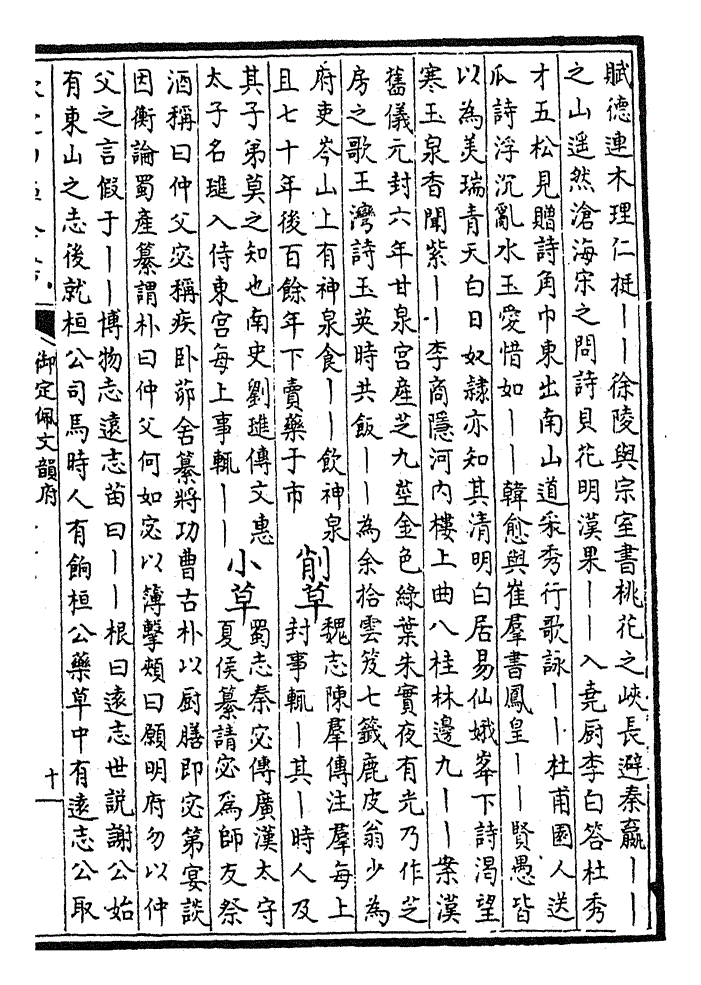 賦德連木理仁挺丨丨徐陵與宗室書桃花之峽長避秦嬴丨丨
之山遥然滄海宋之問詩貝花明漢果丨丨入堯厨李白答杜秀
才五松見贈詩角巾東出南山道采秀行歌詠丨丨杜甫園人送
瓜詩浮沉亂水玉愛惜如丨丨韓愈與崔羣書鳳皇丨丨賢愚皆
以為美瑞青天白日奴隷亦知其清明白居易仙娥峯下詩渴望
寒玉泉香聞紫丨丨李商隱河内樓上曲八桂林邊九丨丨案漢
舊儀元封六年甘泉宫産芝九莖金色緑葉朱實夜有光乃作芝
房之歌王灣詩玉英時共飯丨丨為余拾雲笈七籤鹿皮翁少為
府吏岑山上有神泉食丨丨飲神泉
且七十年後百餘年下賣藥于市
削草
魏志陳羣傳注羣每上
封事輒丨其丨時人及
其子弟莫之知也南史劉璡傳文惠
太子名璡入侍東宫每上事輒丨丨
小草
蜀志秦宓傳廣漢太守
夏侯纂請宓爲師友祭
酒稱曰仲父宓稱疾卧茆舍纂將功曹古朴以厨膳即宓第宴談
因衡論蜀產纂謂朴曰仲父何如宓以簿擊頰曰願明府勿以仲
父之言假于丨丨博物志遠志苗曰丨丨根曰遠志世説謝公始
有東山之志後就桓公司馬時人有餉桓公藥草中有遠志公取
御定佩文韻府
十